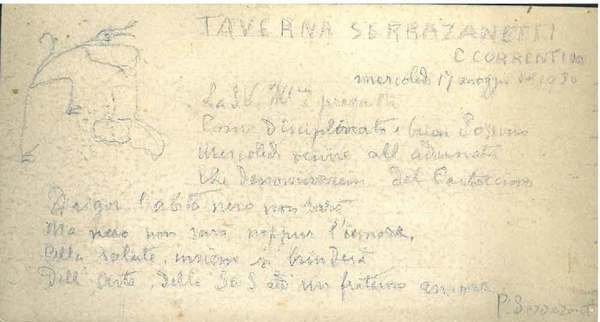 TAVERNA SERRAZANETTI
C CORRENTI
mercoledi 17 maggio 1930
La S.V. è pregata
Com Disciplinato e buon
mercoledi venire all adunata
che denomineremo del
Di rigor l'abito nero non sarà
Ma nero non sarà neppur l'umore,
Alla salute, insieme si brinderà
Dell' arte, della ed un fraterno
P. Serrazanetti